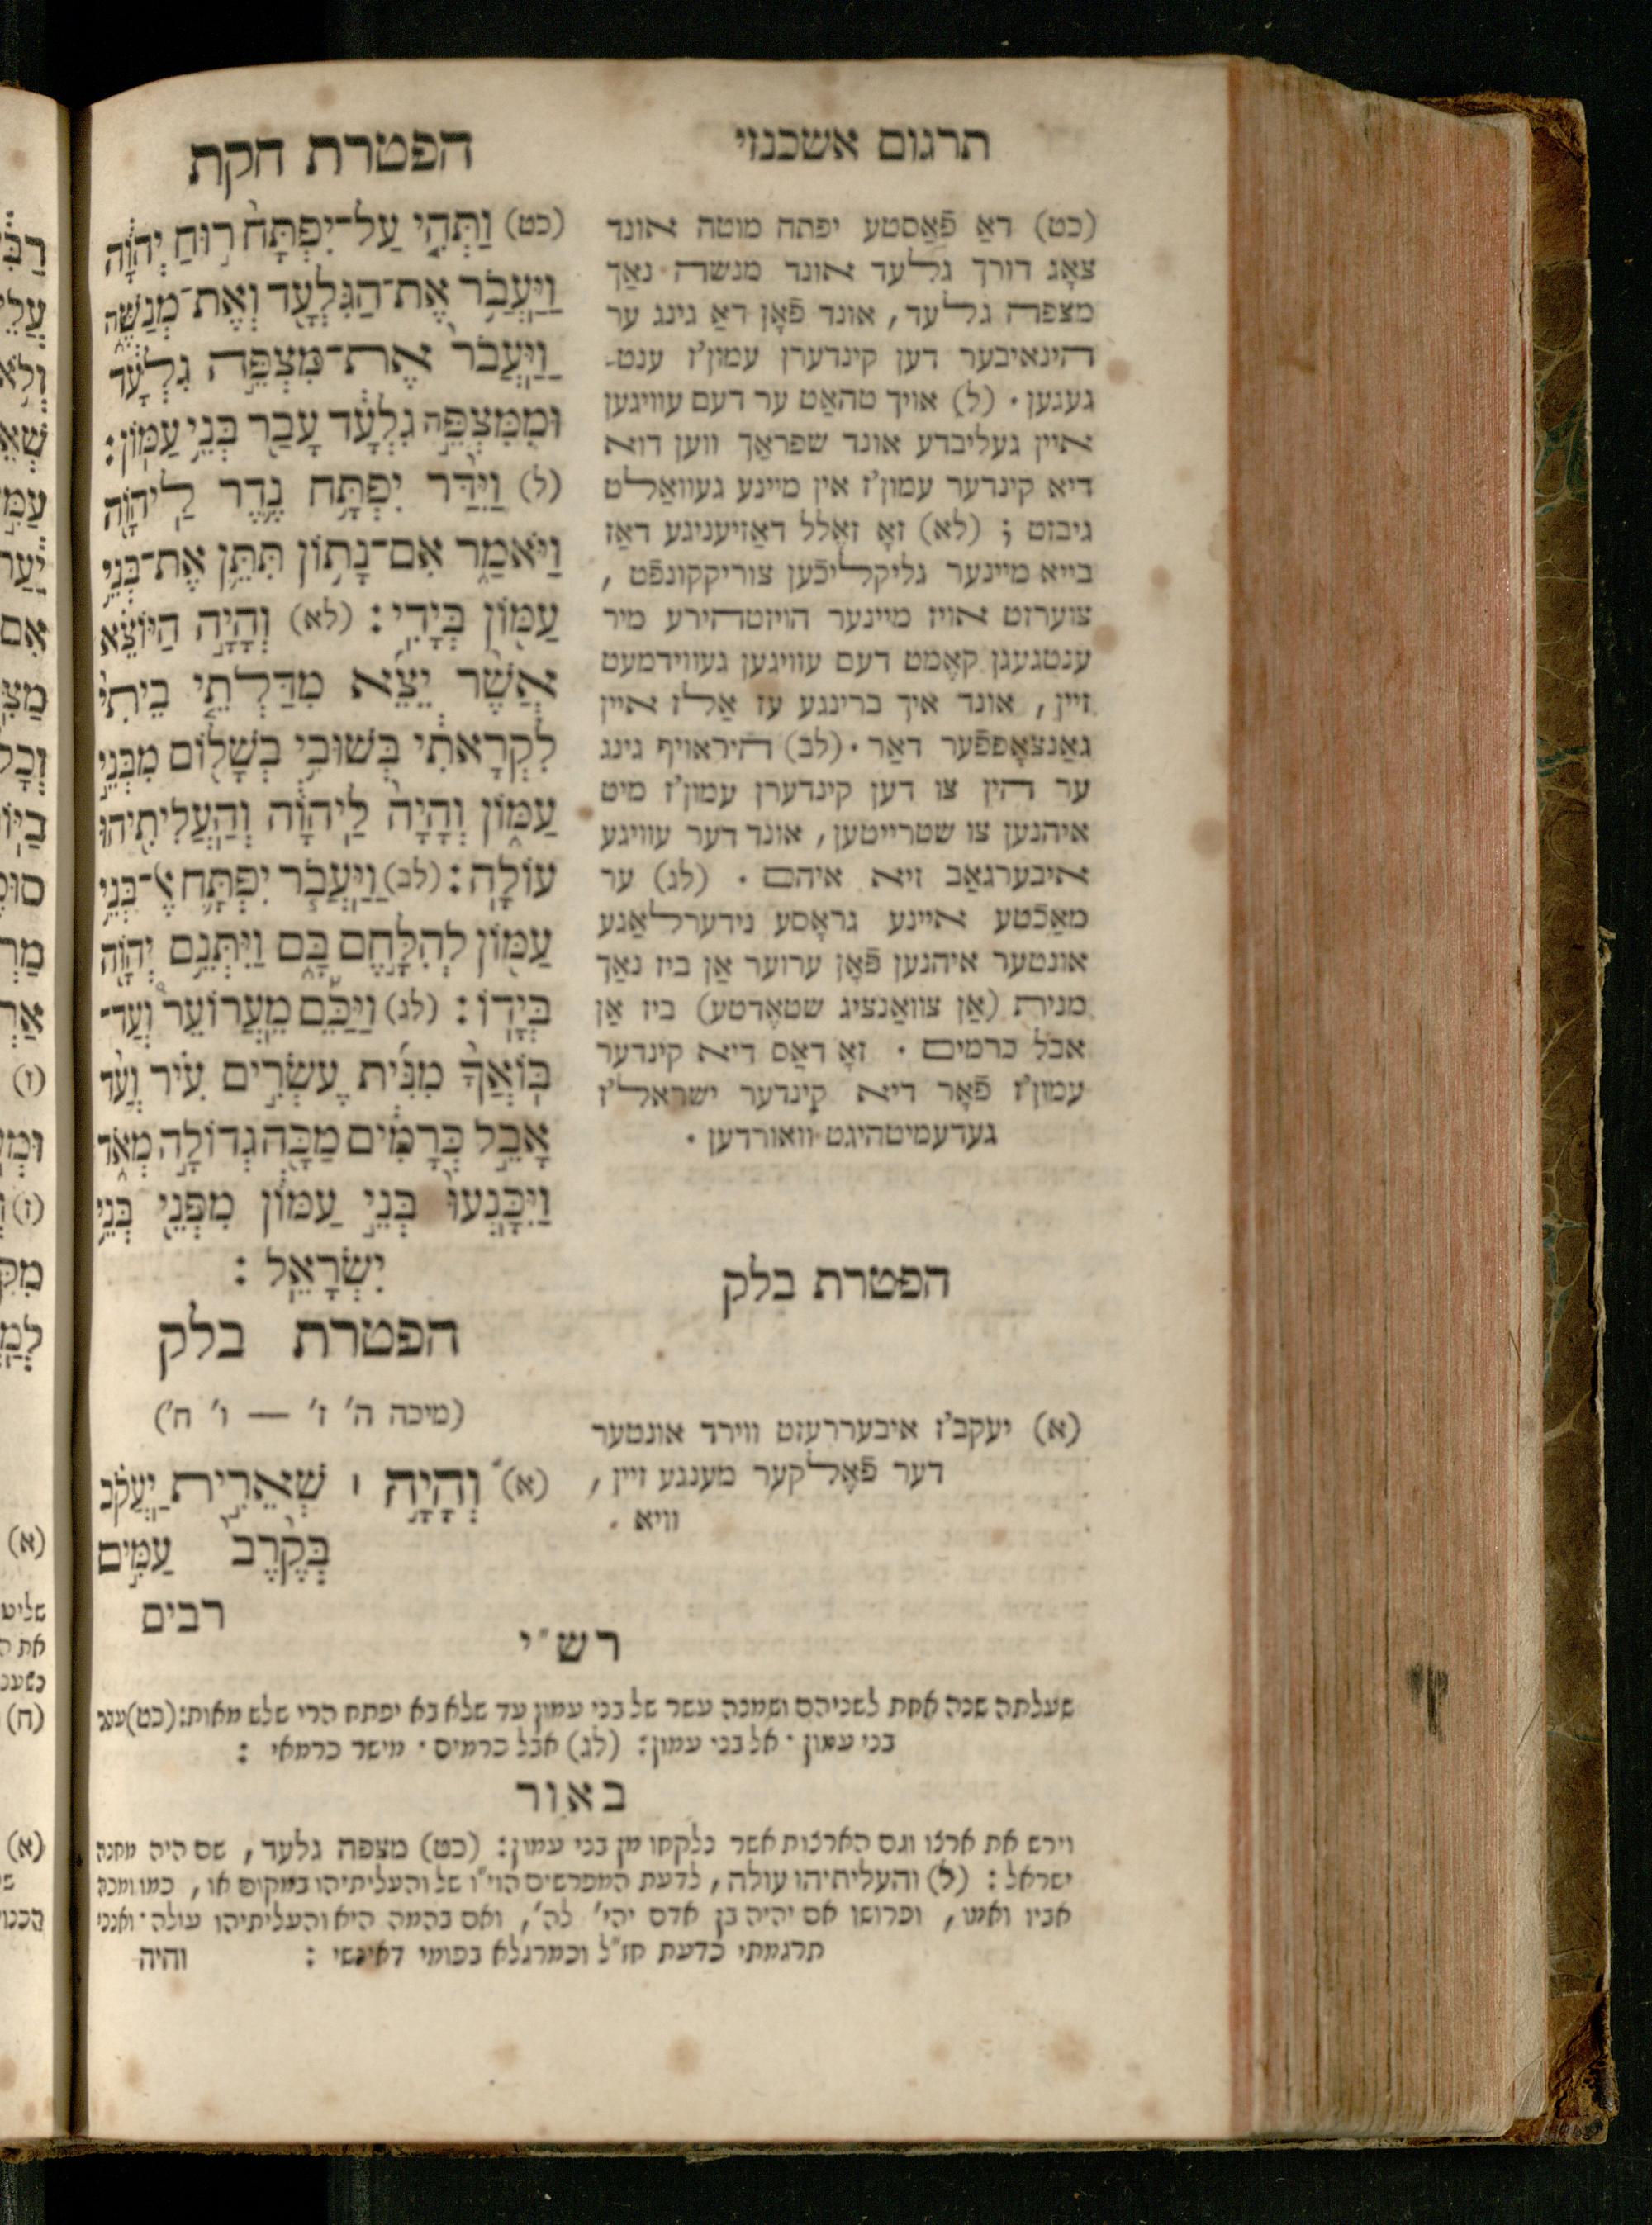 תרגום אשכנזי
הפטרת חקת
(כט) דאַ פֿאַסטע יפתח מוטה אונד
צאָג דורך גלעד אונד מנשה נאַך
מצפה גלעד, אונד פֿאָן דאַ גינג ער
הינאיבער דען קינדערן עמון'ז ענט-
געגען. (ל) אויך טהאַט ער דעם עוויגען
איין געליבדע אונד שפראַך ווען דוא
דיא קינדער עמון'ז אין מיינע געוואַלט
גיבזט ; (לא) זאָ זאָלל דאַזיעניגע דאַז
בייא מיינער גליקליכֿען צוריקקונפֿט ,
צוערזט אויז מיינער הויזטהירע מיר
ענטגעגן קאָמט דעם עוויגען געווידמעט
זיין, אונד איך ברינגע עז אַלז איין
גאַנצאָפפֿער דאַר. (לב) היראויף גינג
ער הין צו דען קינדערן עמון'ז מיט
איהנען צו שטרייטען, אונד דער עוויגע
איבערגאַב זיא איהם. (לג) ער
מאַכֿטע איינע גראָסע נידערלאַגע
אונטער איהנען פֿאָן ערוער אַן ביז נאַך
מנית (אַן צוואַנציג שטאָדטע) ביז אַן
אבל כרמים. זאָ דאַס דיא קינדער
עמון'ז פֿאָר דיא קינדער ישראל'ז
געדעמיטהיגט וואורדען.
(כט) וַתְּהִי עַל־יִפְתָּח רוּחַ יְהוָֹה
וַיַּעֲבֹר אֶת־הַגִּלְעָד וְאֶת־מְנַשֶּׁה
וַיַּעֲבֹר אֶת־מִצְפֵּה גִלְעָד
וּמִמִּצְפֵּה גִלְעָד עָבַר בְּנֵי עַמּוֹן:
(ל) וַיִּדַּר יִפְתָּח נֶדֶר לַיהוָֹה
וַיֹּאמַר אִם־נָתוֹן תִּתֵּן אֶת־בְּנֵי
עַמּוֹן בְּיָדִי: (לא) וְהָיָה הַיּוֹצֵא
אֲשֶׁר יֵצֵא מִדַּלְתֵי בֵיתִי
לִקְרָאתִי בְּשׁוּבִי בְשָׁלוֹם מִבְּנֵי
עַמּוֹן וְהָיָה לַיהוָֹה וְהַעֲלִיתִיהוּ
עוֹלָה: (לב) וַיַּעֲבֹר יִפְתָּח אֶל־בְּנֵי
עַמּוֹן לְהִלָּחֶם בָּם וַיִּתְּנֵם יְהוָֹה
בְּיָדוֹ: (לג) וַיַּכֵּם מֵעֲרוֹעֵר וְעַד־
בּוֹאֲךָ מִנִּית עֶשְׂרִים עִיר וְעַד
אָבֵל כְּרָמִים מַכָּה גְדוֹלָה מְאֹד
וַיִּכָּנְעוּ בְּנֵי עַמּוֹן מִפְּנֵי בְּנֵי
יִשְׂרָאֵל:
הפטרת בלק
(א) יעקב'ז איבעררעזט ווירד אונטער
דער פֿאָלקער מענגע זיין,
וויא
הפטרת בלק
(מיכה ה' ז' — ו' ח')
(א) וְהָיָה ׀ שְׁאֵרִית יַעֲקֹב
בְּקֶרֶב עַמִּים
רבים
רש"י
שעלתה שנה אחת לשניהם ושמנה עשר של בני עמון עד שלא בא יפתח הרי שלש מאות: (כט) עבר
בני עמון. אל בני עמון: (לג) אבל כרמים. מישר כרמאי :
באור
וירש את ארצו וגם הארצות אשר נלקחו מן בני עמון: (כט) מצפה גלעד, שם היה מחנה
ישראל: (ל) והעליתיהו עולה, לדעת המפרשים הוי"ו של והעליתיהו במקום או, כמו ומכה
אביו ואמו, ופרושו אם יהיה בן אדם יהי' לה', ואם בהמה היא והעליתיהו עולה. ואנכי
תרגמתי כדעת חז"ל וכמרגלא בפומי דאינשי :
והיה